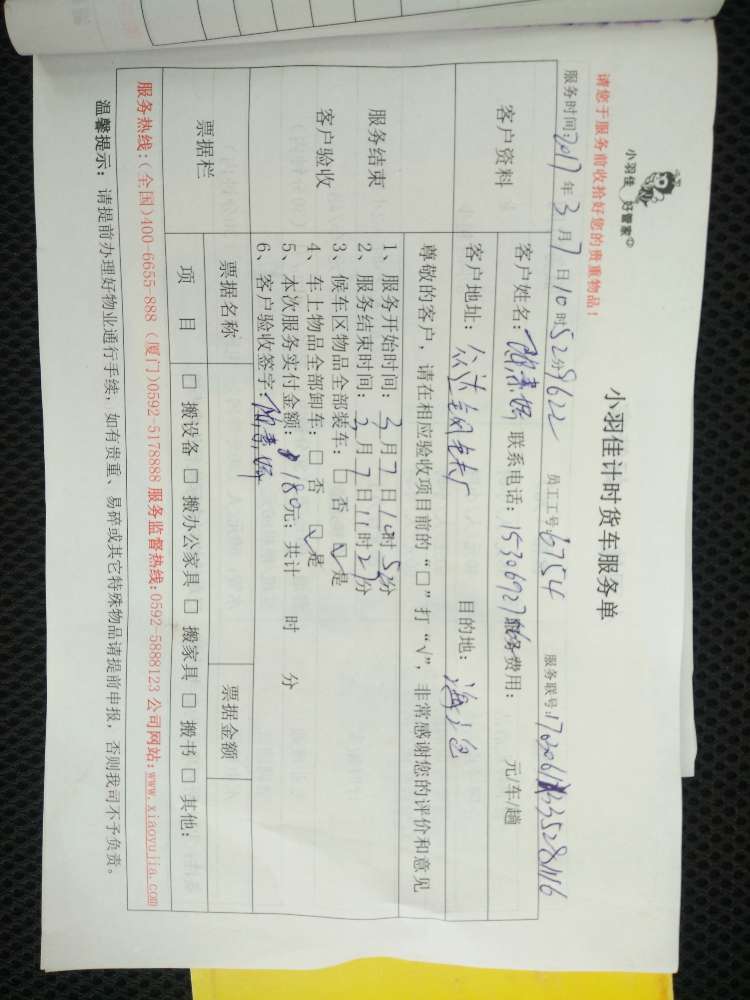 小羽佳 好管家
小羽佳计时货车服务单
请您于服务前收拾好您的贵重物品！
服务时间2017年3月7日10时52分9622 员工工号:6754 服务联号:
客户资料
客户姓名: 联系电话: 服务费用: 元/车/趟
客户地址: 众达 目的地: 海沧
服务结束
客户验收
尊敬的客户，请在相应验收项目前的“□”打“√”，非常感谢您的评价和意见
1、服务开始时间: 3月7日10时52分
2、服务结束时间: 3月7日11时27分
3、候车区物品全部装车: □ 否 ☑ 是
4、车上物品全部卸车: □ 否 ☑ 是
5、本次服务实付金额: 180元; 共计 时 分
6、客户验收签字:
票据栏
票据名称 票据金额
项 目 □ 搬设备 □ 搬办公家具 □ 搬家具 □ 搬书 □ 其他:
服务热线:(全国)400-6655-888 (厦门)0592-5178888 服务监督热线:0592-5888123 公司网站:www.xiaoyujia.com
温馨提示: 请提前办理好物业通行手续，如有贵重、易碎或其它特殊物品请提前申报，否则我司不予负责。